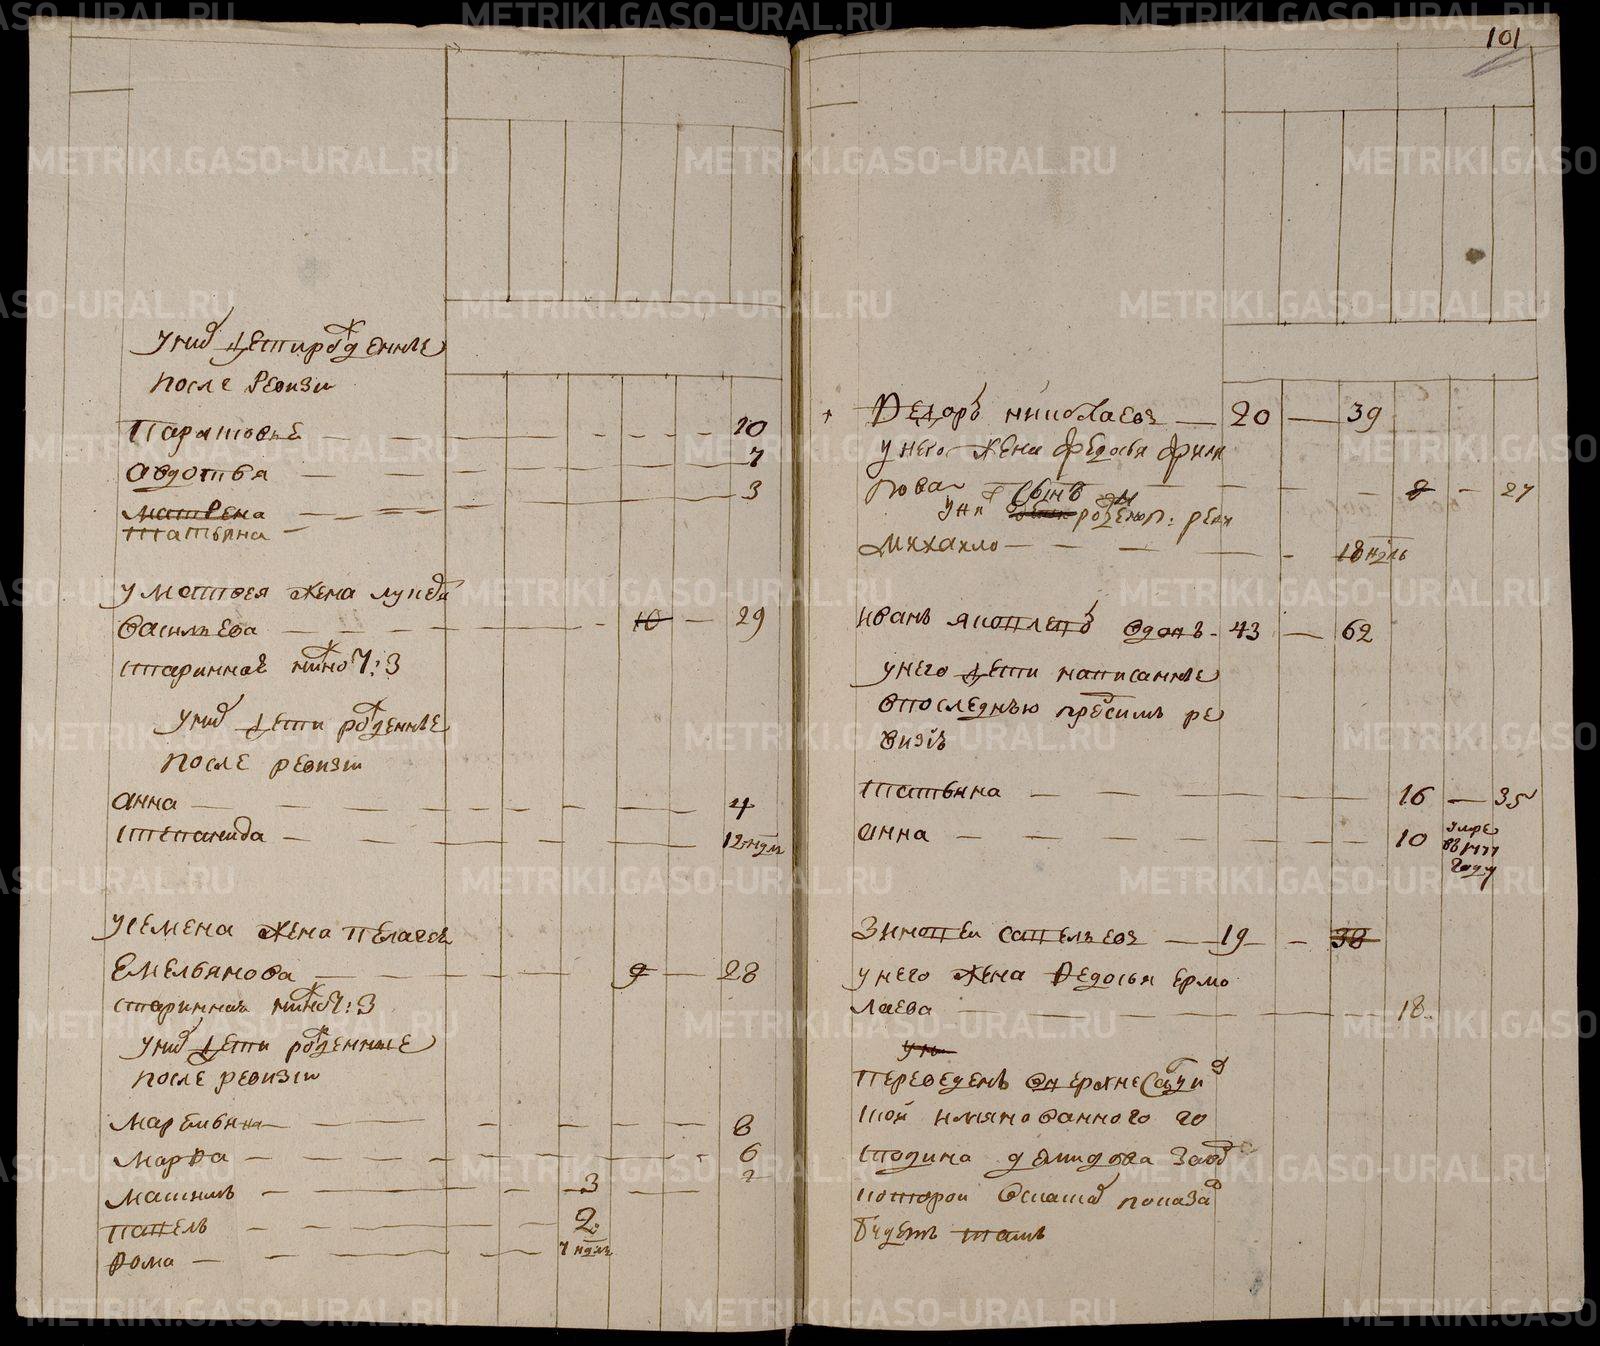 101
у них дети рожденные
после ревизии
Парасковья 10
Авдотья 7
Матрена 3
Татьяна
у Матвея жена Лукерья
Васильева 10 29
старинная
у них дети рожденные
после ревизии
Анна 4
Степанида 12 недель
у Семена жена Пелагея
Емельянова 9 28
старинная
у них дети рожденные
после ревизии
Маремьяна 8
Марфа 6
2
Максимъ 3
Павелъ 2
Фома 7 недель
Федоръ Николаевъ 20 39
у него жена Федосья Фили
пова 8 27
у них сынъ рожден п: реви
Михайло 18 недель
Иванъ Яковлевъ вдовъ 43 62
у него дети написанные
в последнюю пред симъ ре
визiю
Татьяна 16 35
Анна 10 умре
въ
году
Зиновей Савельевъ 19 38
у него жена Федосья Ермо
лаева 18
у не
переведенъ в верхнесалдин
ской имянованного го
сподина Демидова завод
которой в сказке показан
будетъ тамъ
METRIKI.GASO-URAL.RU